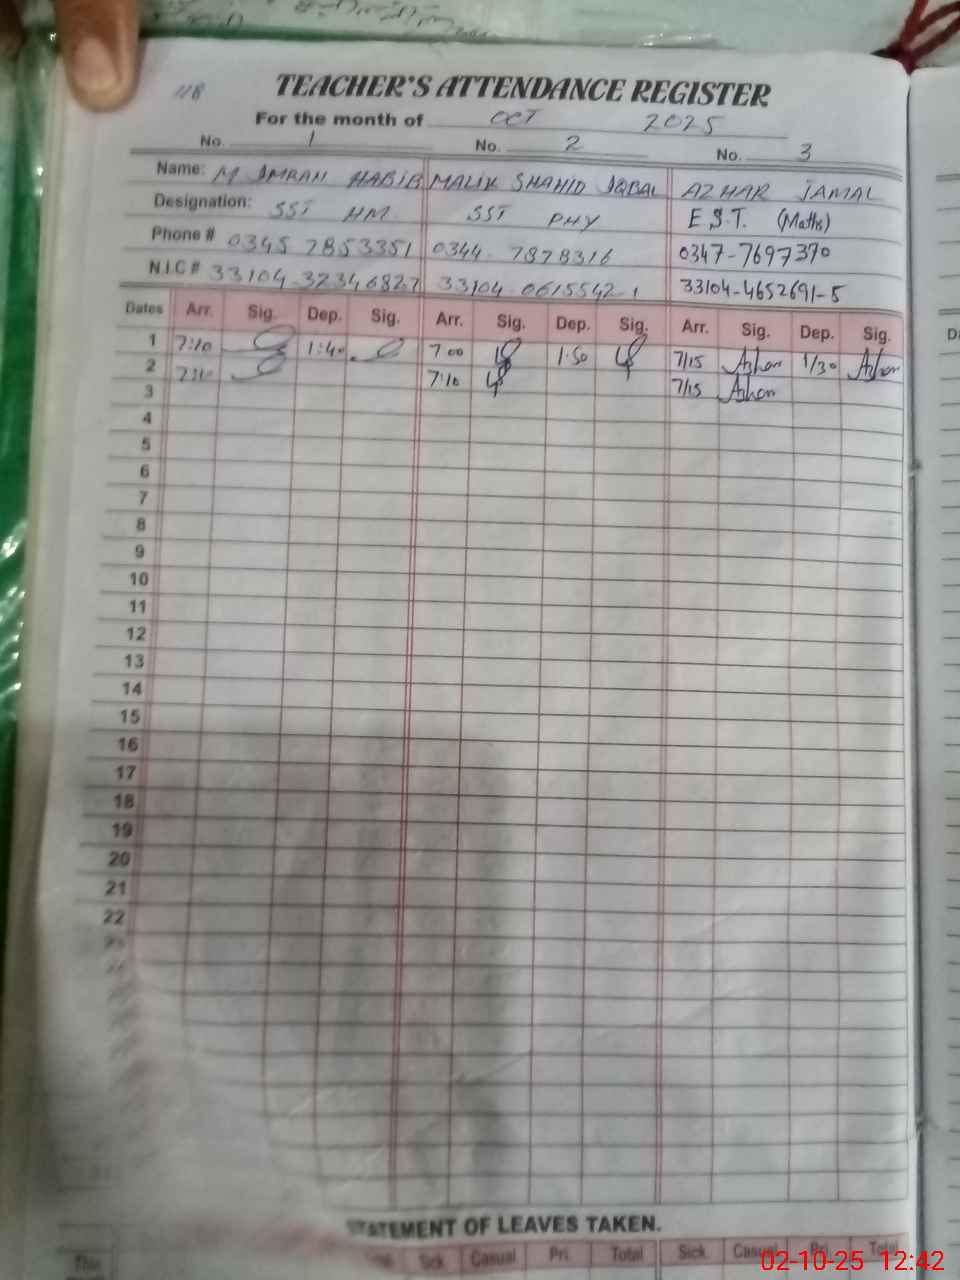 118
TEACHER'S ATTENDANCE REGISTER
For the month of OCT 2025
No. 1 No. 2 No. 3
Name: M IMRAN HABIB MALIK SHAHID IQBAL AZHAR JAMAL
Designation: SST HM SST PHY E.S.T. (Maths)
Phone # 0345 7853351 0344 7878316 0347-7697370
N.I.C # 33104 32346827 33104 0615542-1 33104-4652691-5
Dates Arr. Sig. Dep. Sig. Arr. Sig. Dep. Sig. Arr. Sig. Dep. Sig.
1 7:10 1:40 7 00 1:50 7/15 Azhar 1/30 Azhar
2 7:10 7:10 7/15 Azhar
3
4
5
6
7
8
9
10
11
12
13
14
15
16
17
18
19
20
21
22
STATEMENT OF LEAVES TAKEN.
This Sick Casual Pri. Total Sick Casual Pri. Total
02-10-25 12:42